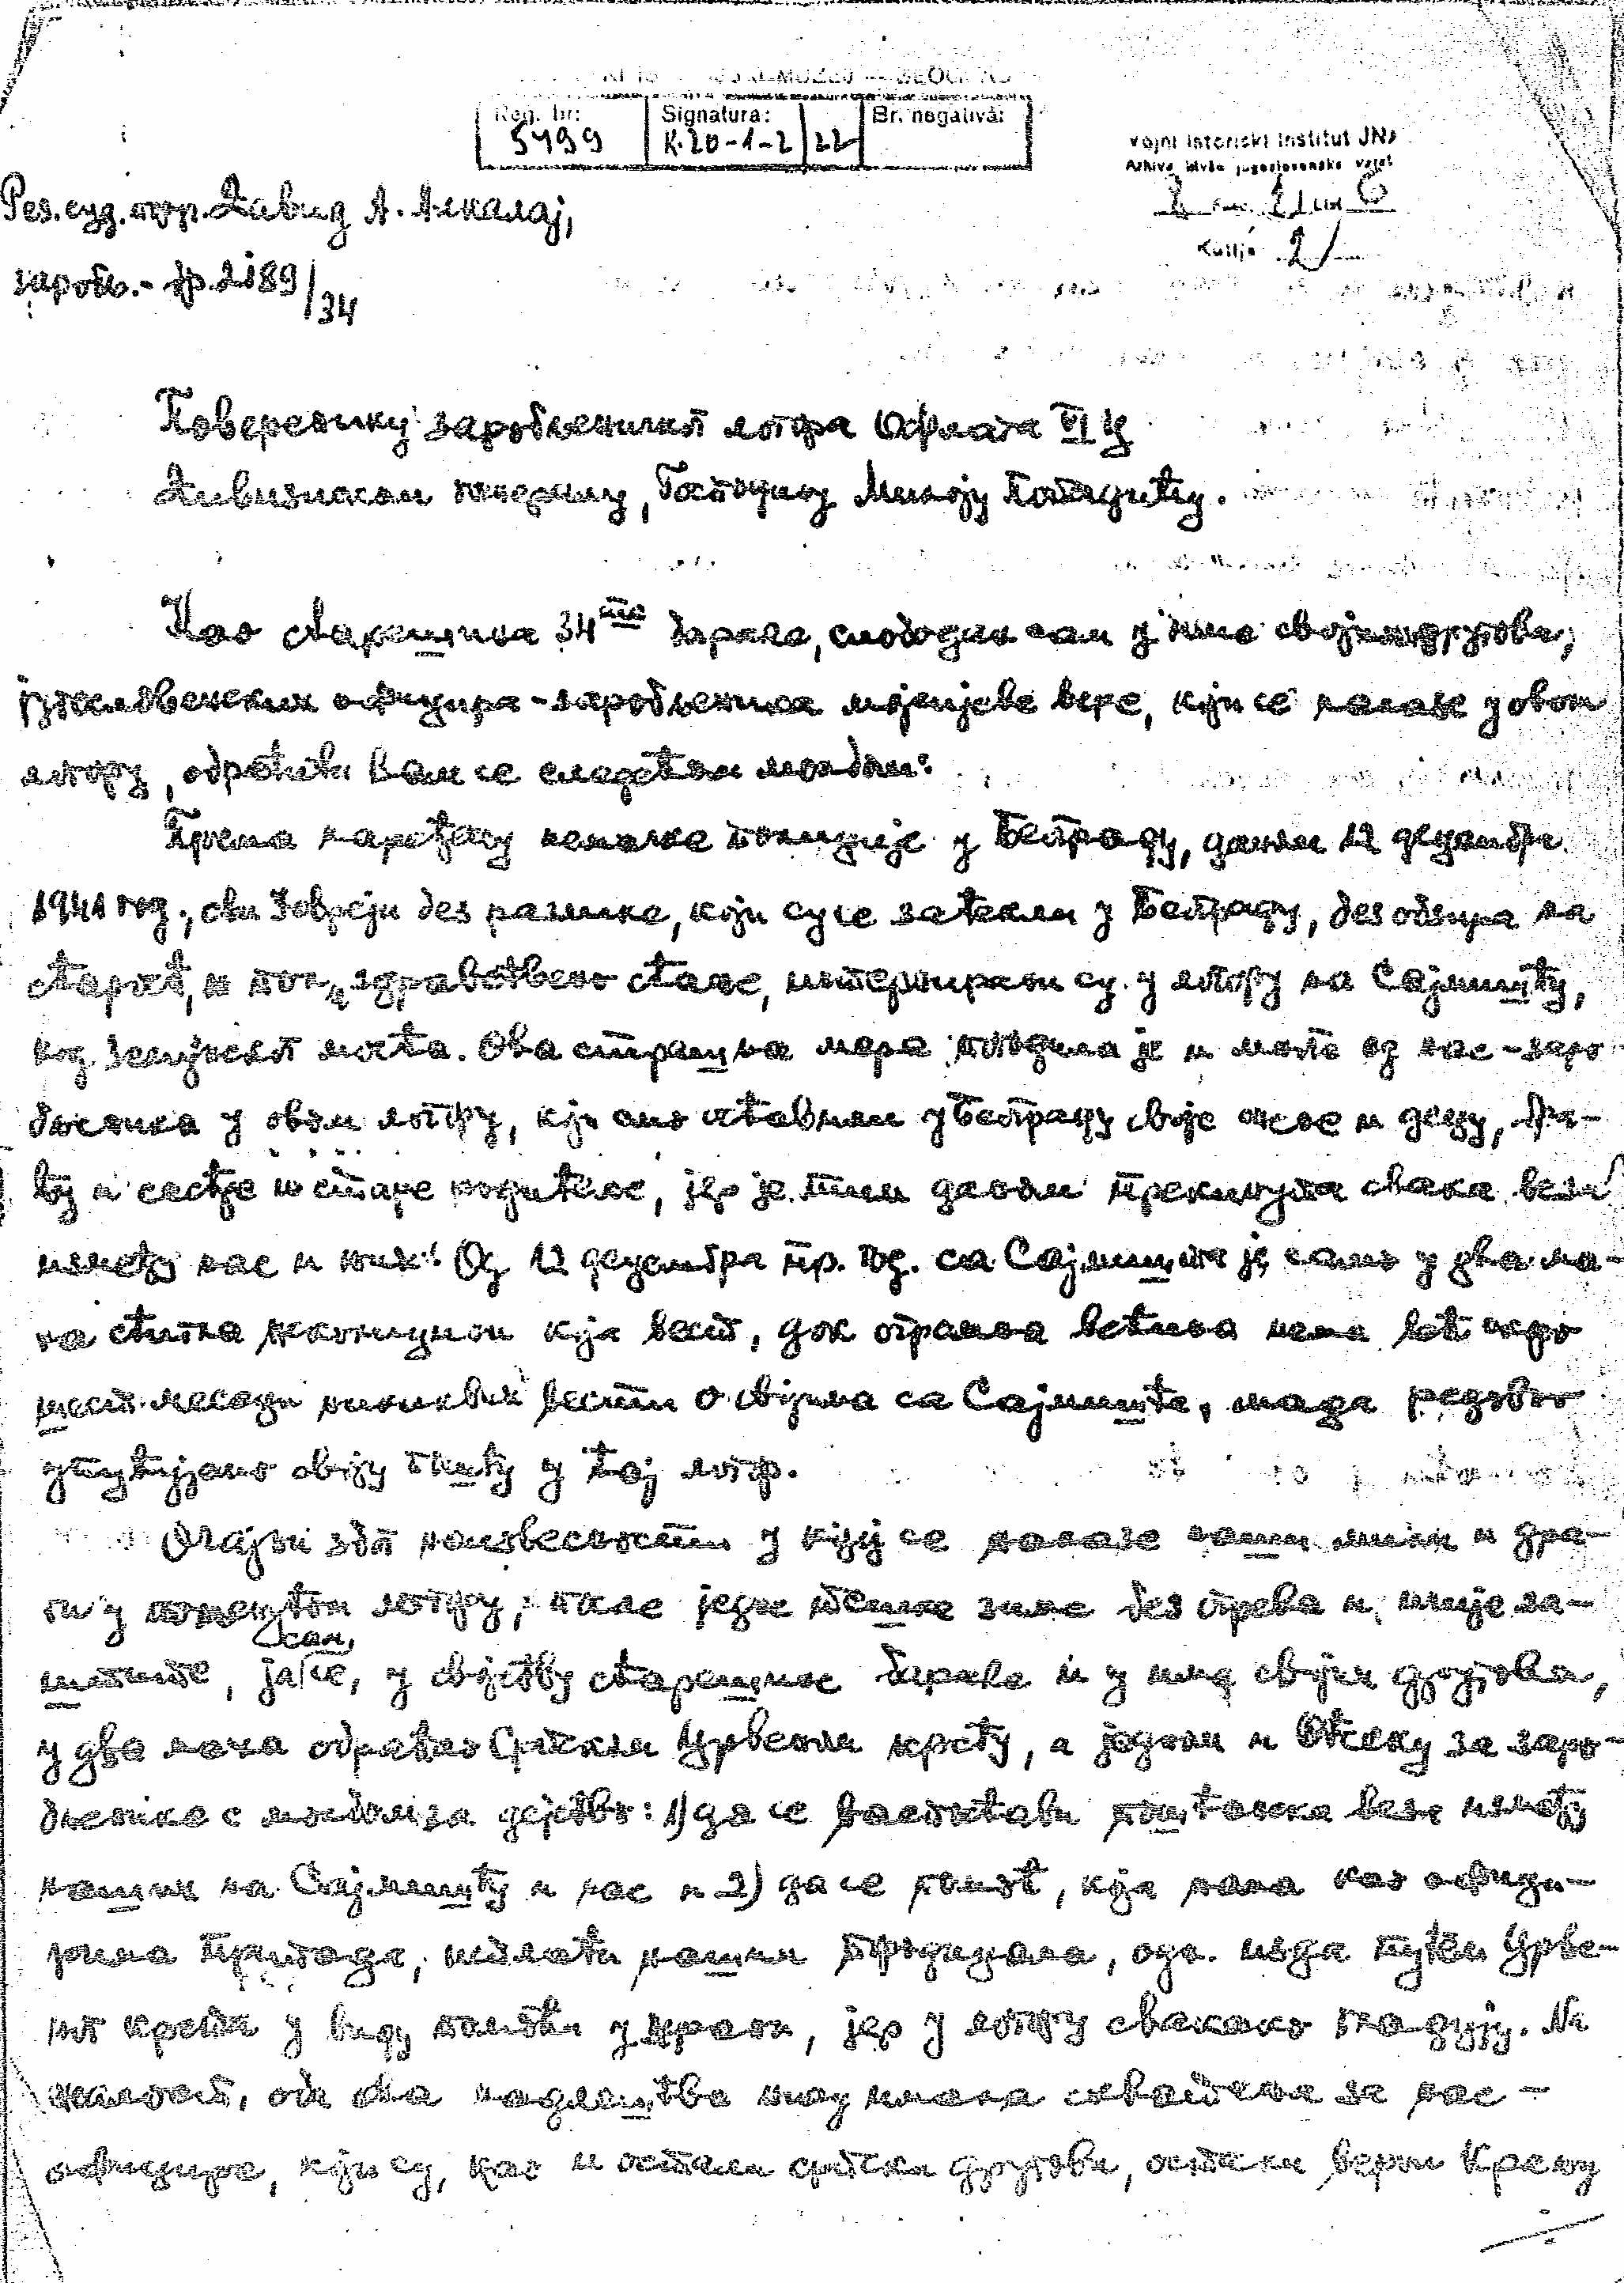 Reg. br: Signatura: Br. negativa:
5499 K. 20-1-2/22
Vojni istoriski institut JNA
Arhiva bivše jugoslovenske vojske
Рез. суд. пор. Давид А. Алкалај,
заробљ.- бр. 2189/34
Поверенику заробљеничког логора Офлага VI Ц
Дивизиском генералу, Господину Милоју
Као старешина 34те бараке, слободан сам у име својих другова,
југословенских официра-заробљеника мојсијеве вере, који се налазе у овом
логору, обратити Вам се следећом молбом:
Према наређењу немачке полиције у Београду, даном 12 децембра
1941 год., сви Јевреји без разлике, који су се затекли у Београду, без обзира на
старост, и пол и здравствено стање, интернирани су у логору на Сајмишту,
код Земунског моста. Ова страшна мера погодила је и многе од нас-заро-
бљеника у овом логору, који смо оставили у Београду своје жене и децу, бра-
ћу и сестре и старе родитеље, јер је тим даном прекинута свака веза
између нас и њих! Од 12 децембра пр. год. са Сајмишта је само у два ма-
ха стигла појединцима која вест, док огромна већина нема већ скоро
шест месеци никаквих вести о својима са Сајмишта, мада редовно
упућујемо своју пошту у тај логор.
Очајни због неизвесности у којој се налазе наши мили и дра-
ги у поменутом логору, после једне тешке зиме без огрева и ичије за-
штите, ја сам се, у својству старешине бараке и у име својих другова,
у два маха обраћао Српском Црвеном крсту, а једном и Отсеку за заро-
бљенике с молбом за дејство: 1) да се васпостави поштанска веза између
наших на Сајмишту и нас и 2) да се помоћ, која нама као офици-
рима припада, исплати нашим породицама, одн. изда путем Црве-
ног крста у виду помоћи у храни, јер у логору свакако гладују. На
жалост, оба ова надлештва нису имала схватања за нас -
официре, који су, као и остали српски другови, остали верни Краљу